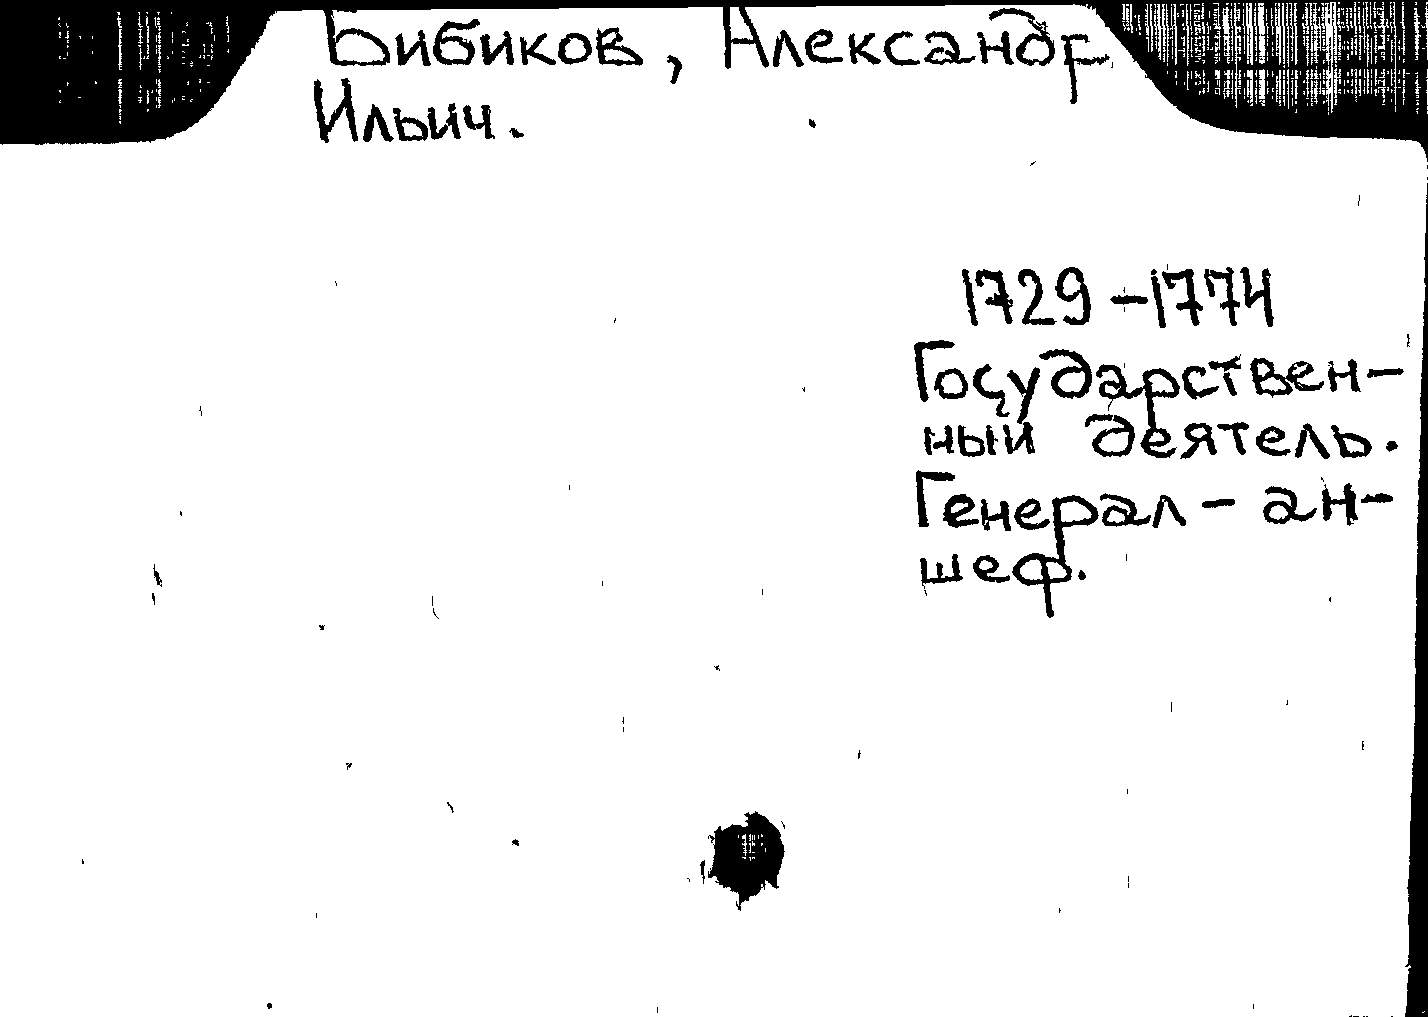 Бибиков, Александр
Ильич.
1729-1774
Государствен-
ный деятель.
Генерал-ан-
шеф.